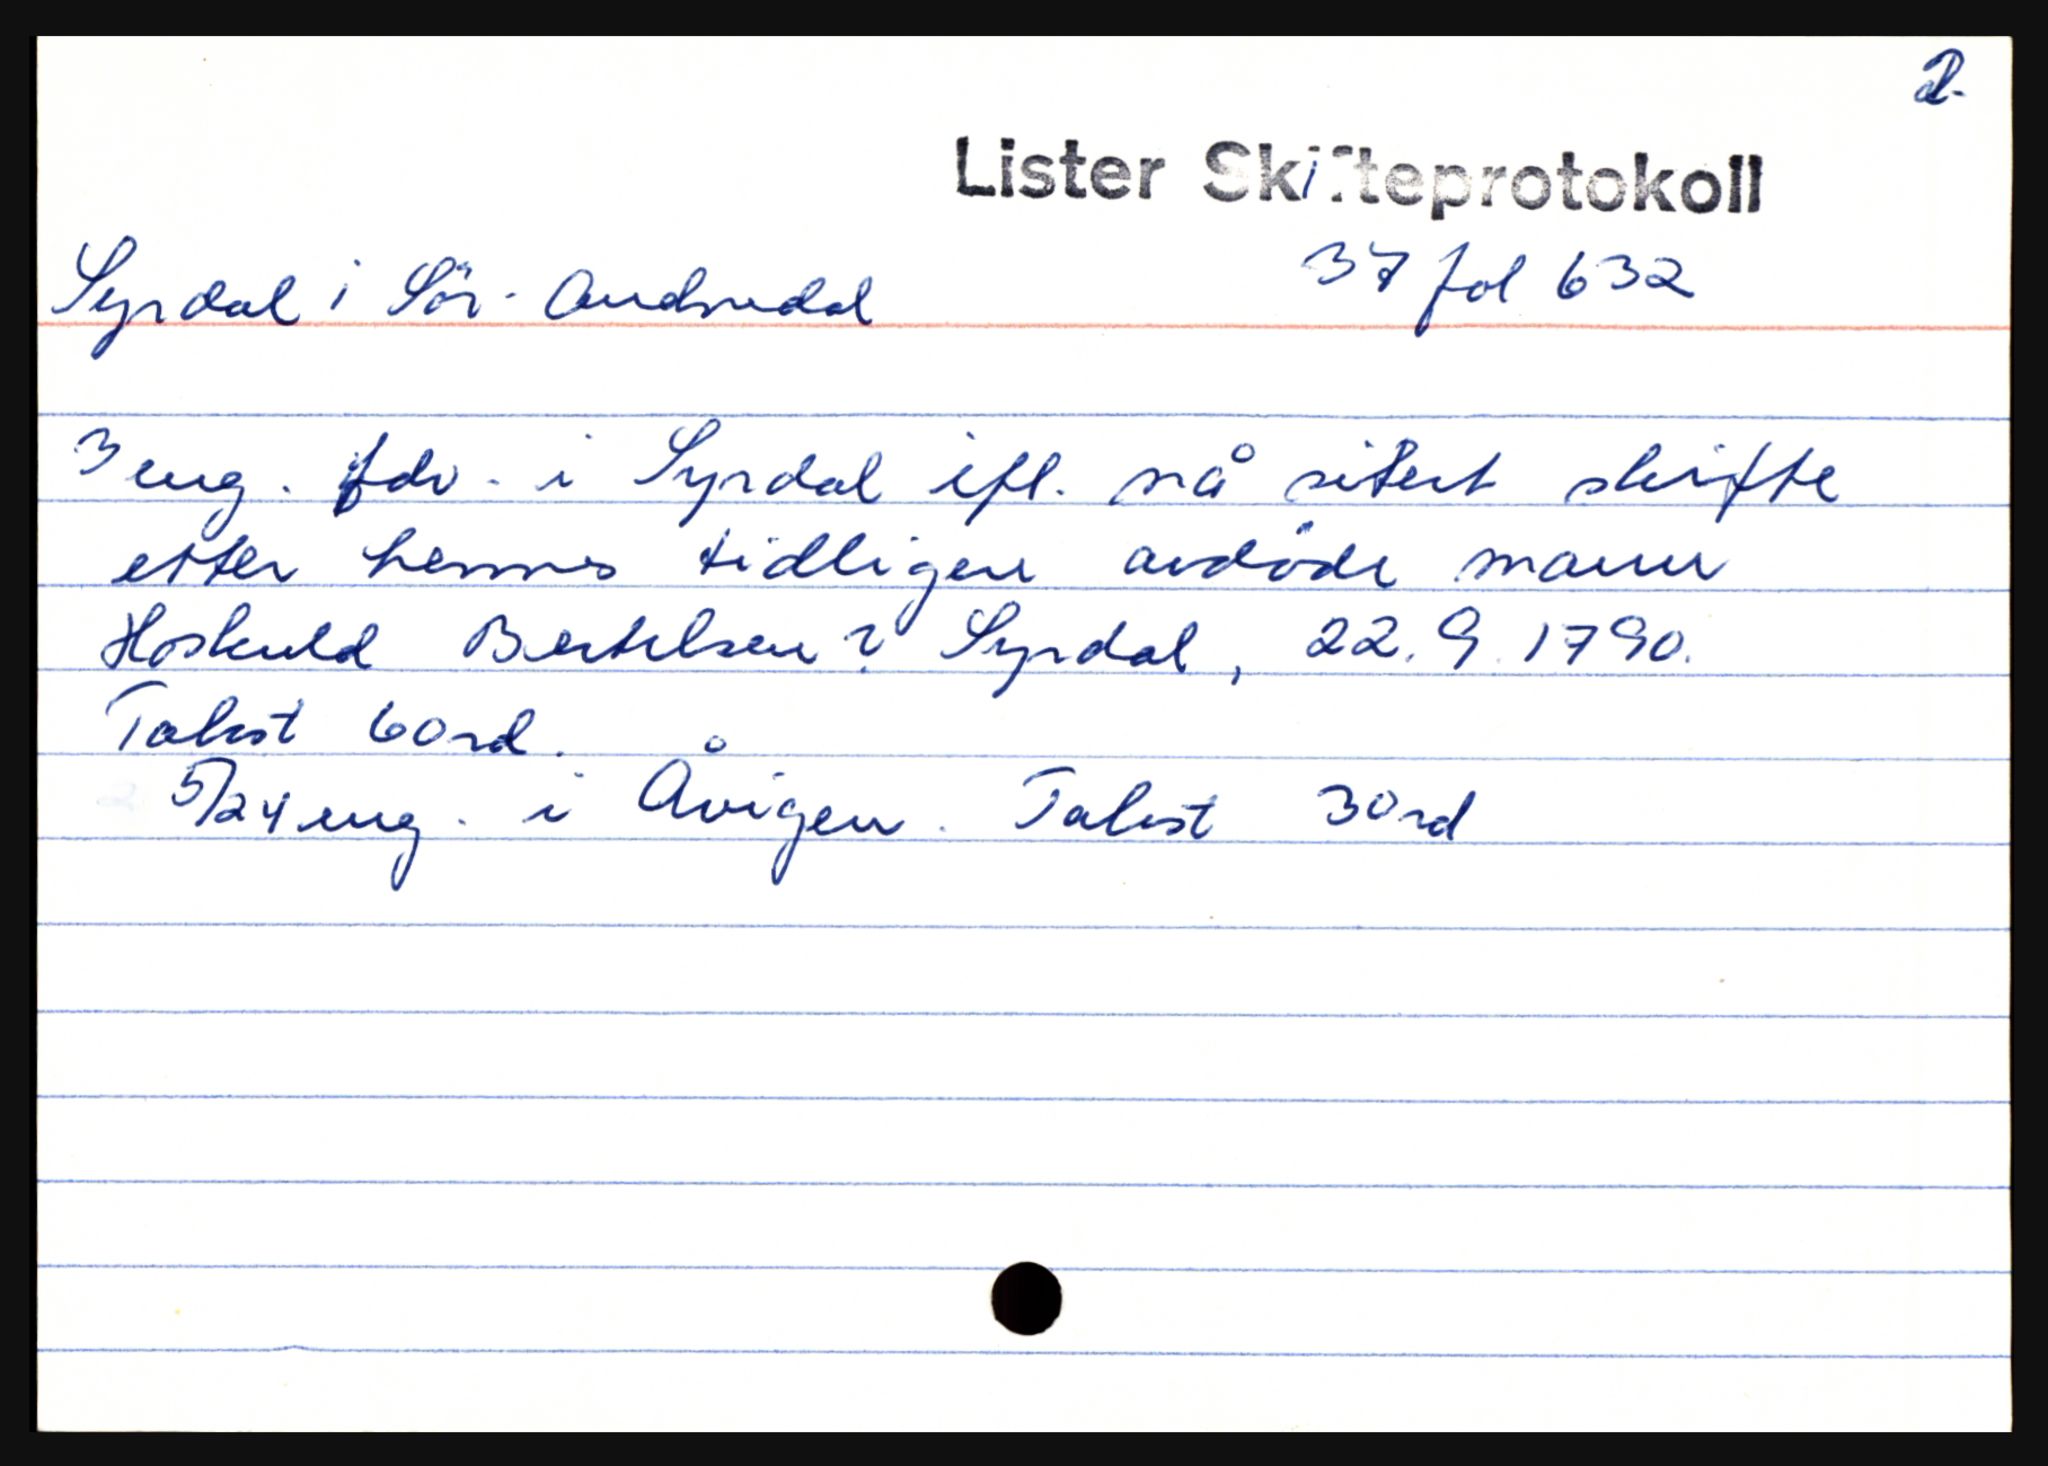 2.
Lister Skifteprotokoll
37 fol 632
Syrdal i Sör-Audnedal
3 eng. fdv. i Syrdal ifl. nå sitert skifte
etter hennes tidligere avdöde mann
Hoskuld Bertelsen? Syrdal, 22.9.1790.
Takst 60 rd.
5/24 eng. i Åvigen. Takst 30 rd